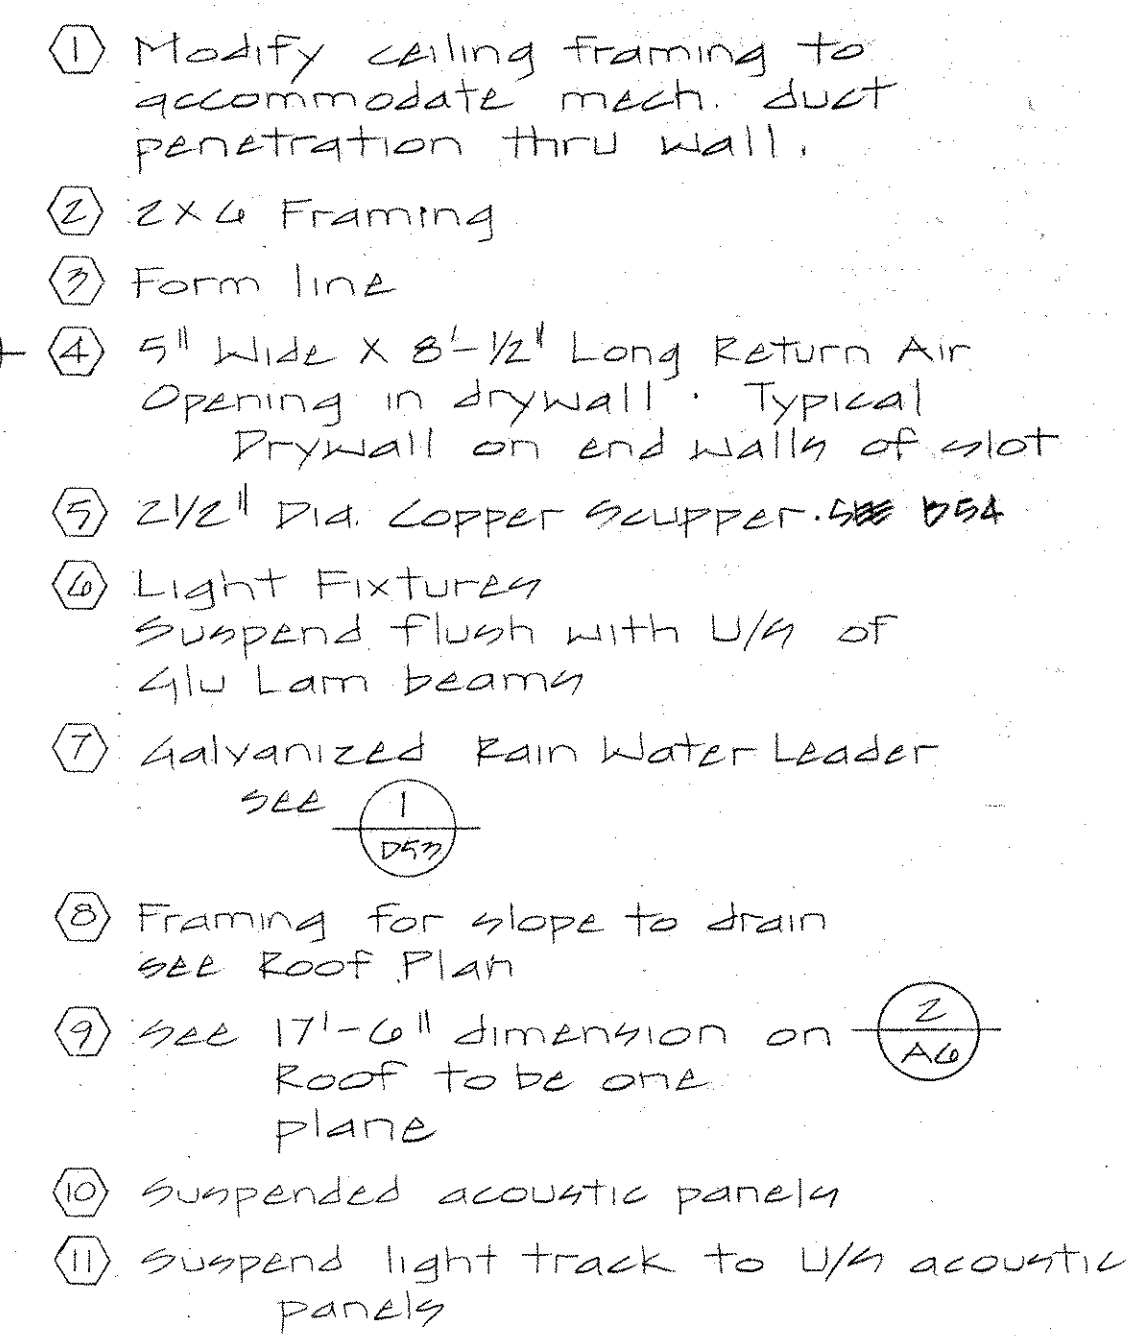 1 Modify ceiling framing to
accommodate mech. duct
penetration thru wall.
2 2X6 Framing
3 Form line
4 5" Wide X 8'-1/2" Long Return Air
Opening in drywall. Typical
Drywall on end walls of slot
5 2 1/2" Dia. Copper Scupper. See D54
6 Light Fixtures
Suspend flush with U/S of
Glu Lam beams
7 Galvanized Rain Water Leader
see 1
D53
8 Framing for slope to drain
see Roof Plan
9 See 17'-6" dimension on 2
A6
Roof to be one
plane
10 Suspended acoustic panels
11 Suspend light track to U/S acoustic
panels